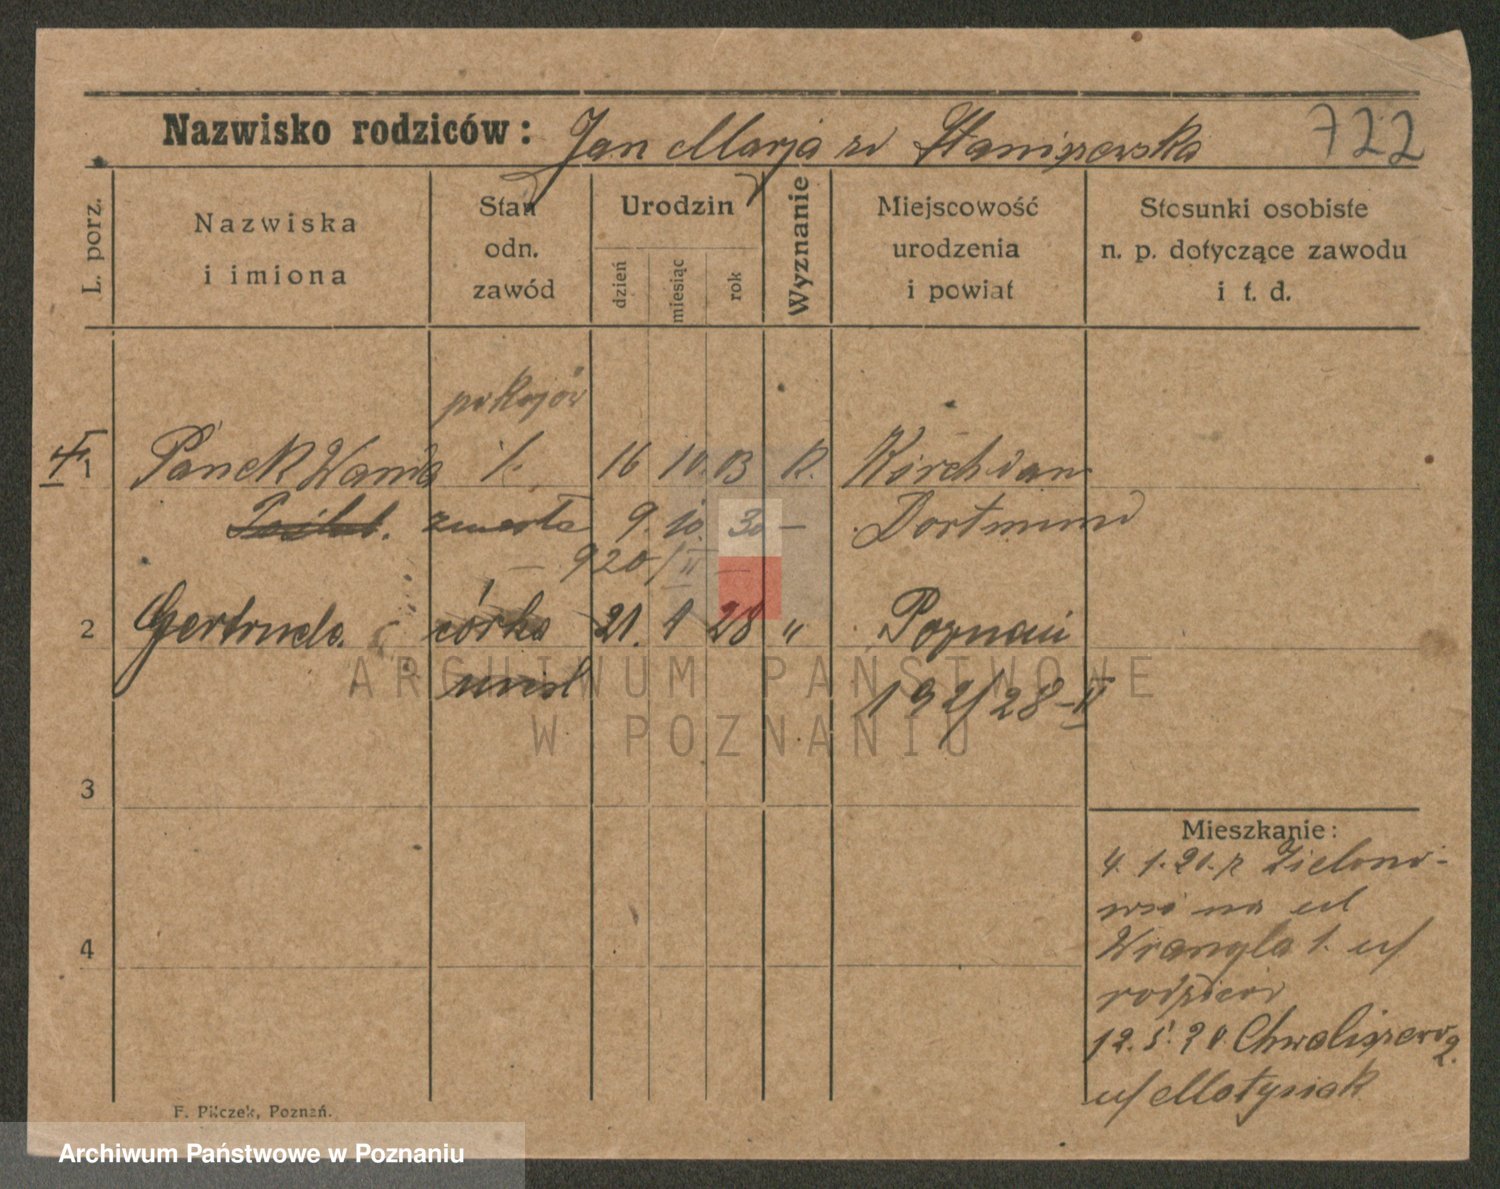 722
Nazwisko rodziców: Jan Marja zd Staniszewska
L. porz.
Nazwiska i imiona
Stan odn. zawód
Urodzin
dzień
miesiąc
rok
Wyznanie
Miejscowość urodzenia i powiat
Stosunki osobiste n. p. dotyczące zawodu i t. d.
pokojów
1 Panek Wanda 16 10. 03 k. Kirch
zmarła 9. 10. 30 — Dortmund
— 920/II —
2 Gertruda. córka 21. 1 28 " Poznań
192/28-II
3
4
Mieszkanie:
4. 1. 20. z Zielono-
wsi na ul
Wrangla 1. u/
rodziców
12. 5. 20 Chwaliszewo 2.
u/ Matysiak
F. Pilczek, Poznań.
ARCHIWUM PAŃSTWOWE
W POZNANIU
Archiwum Państwowe w Poznaniu